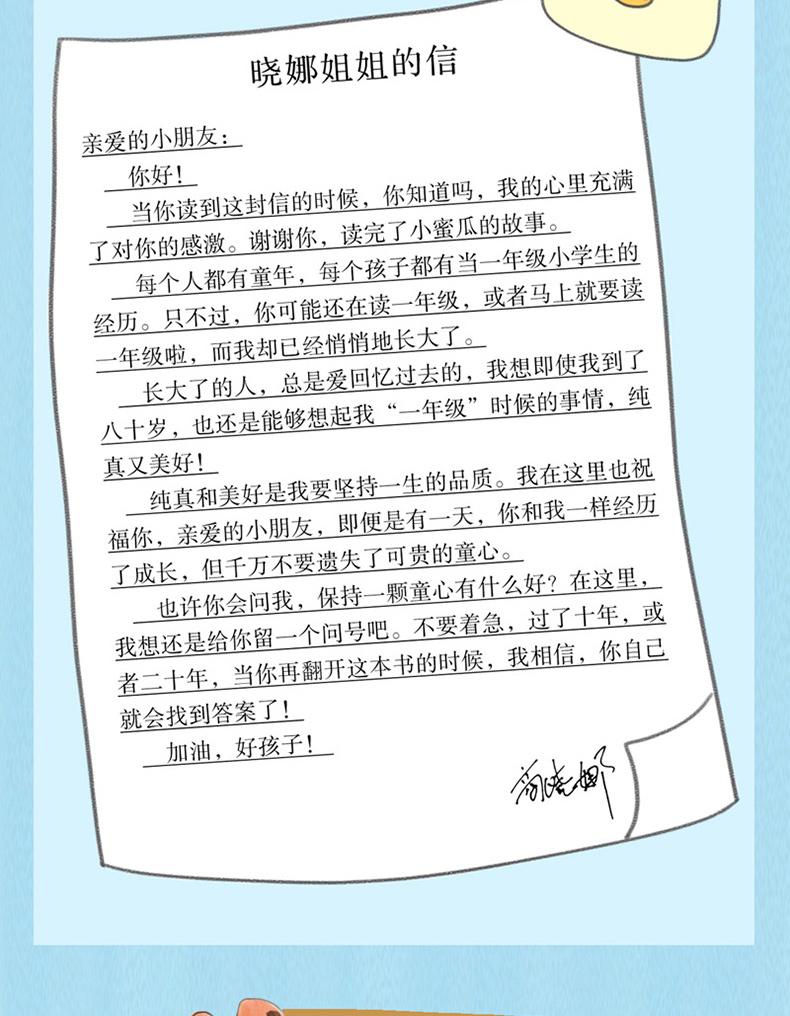 晓娜姐姐的信
亲爱的小朋友：
你好！
当你读到这封信的时候，你知道吗，我的心里充满
了对你的感激。谢谢你，读完了小蜜瓜的故事。
每个人都有童年，每个孩子都有当一年级小学生的
经历。只不过，你可能还在读一年级，或者马上就要读
一年级啦，而我却已经悄悄地长大了。
长大了的人，总是爱回忆过去的，我想即使我到了
八十岁，也还是能够想起我“一年级”时候的事情，纯
真又美好！
纯真和美好是我要坚持一生的品质。我在这里也祝
福你，亲爱的小朋友，即便是有一天，你和我一样经历
了成长，但千万不要遗失了可贵的童心。
也许你会问我，保持一颗童心有什么好？在这里，
我想还是给你留一个问号吧。不要着急，过了十年，或
者二十年，当你再翻开这本书的时候，我相信，你自己
就会找到答案了！
加油，好孩子！
晓娜